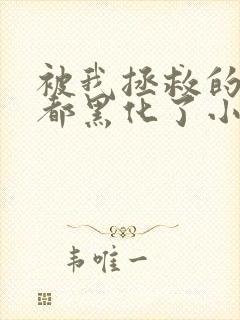 被我拯救的
都黑化了小
韦唯一